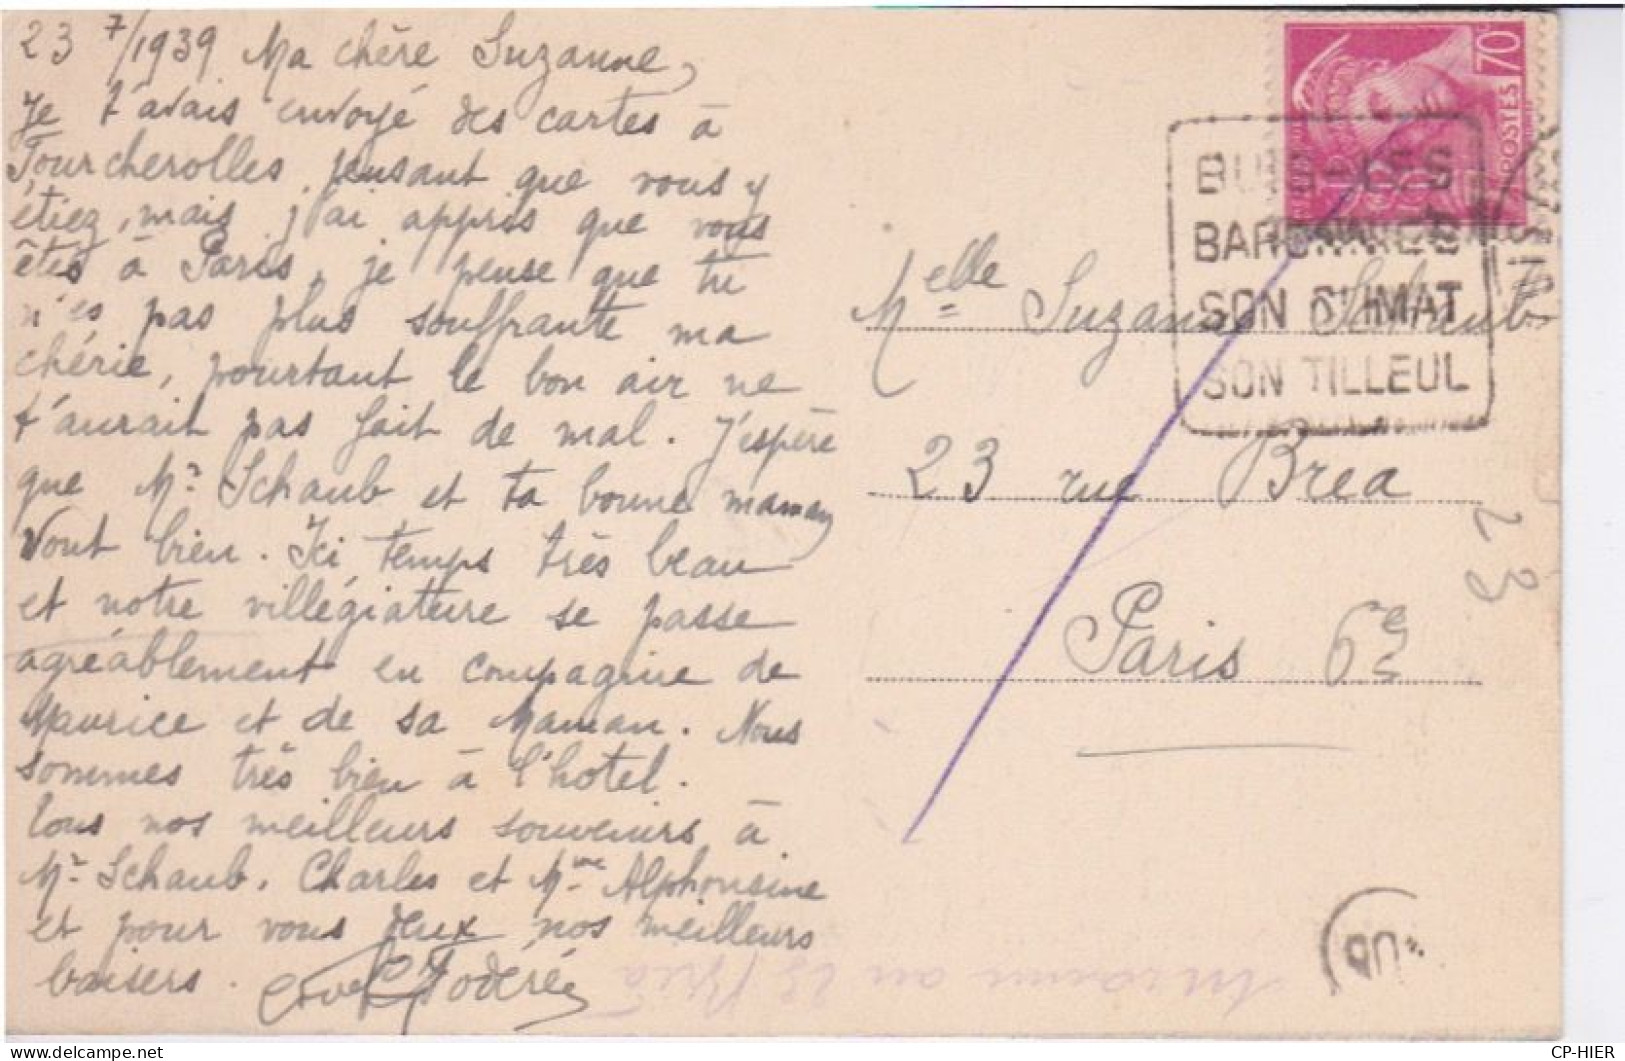 23 7/1939 Ma chère Suzanne,
Je t'avais envoyé des cartes à
Fourcherolles, pensant que vous y
étiez, mais j'ai appris que vous
êtes à Paris, je pense que tu
n'es pas plus souffrante ma
chérie, pourtant le bon air ne
t'aurait pas fait de mal. J'espère
que Mr Schaub et ta bonne maman
vont bien. Ici temps très beau
et notre villégiature se passe
agréablement en compagnie de
Maurice et de sa Maman. Nous
sommes très bien à l'hotel.
Tous nos meilleurs souvenirs à
Mr Schaub, Charles et Mme Alphonsine
et pour vous deux nos meilleurs
baisers.
70c
POSTES
BUIS-LES
BARONNIES
SON CLIMAT
SON TILLEUL
Melle Suzanne Schaub
23 rue Brea
Paris 6e
23
Inconnu au 23 Brea
CP-HIER
www.delcampe.net